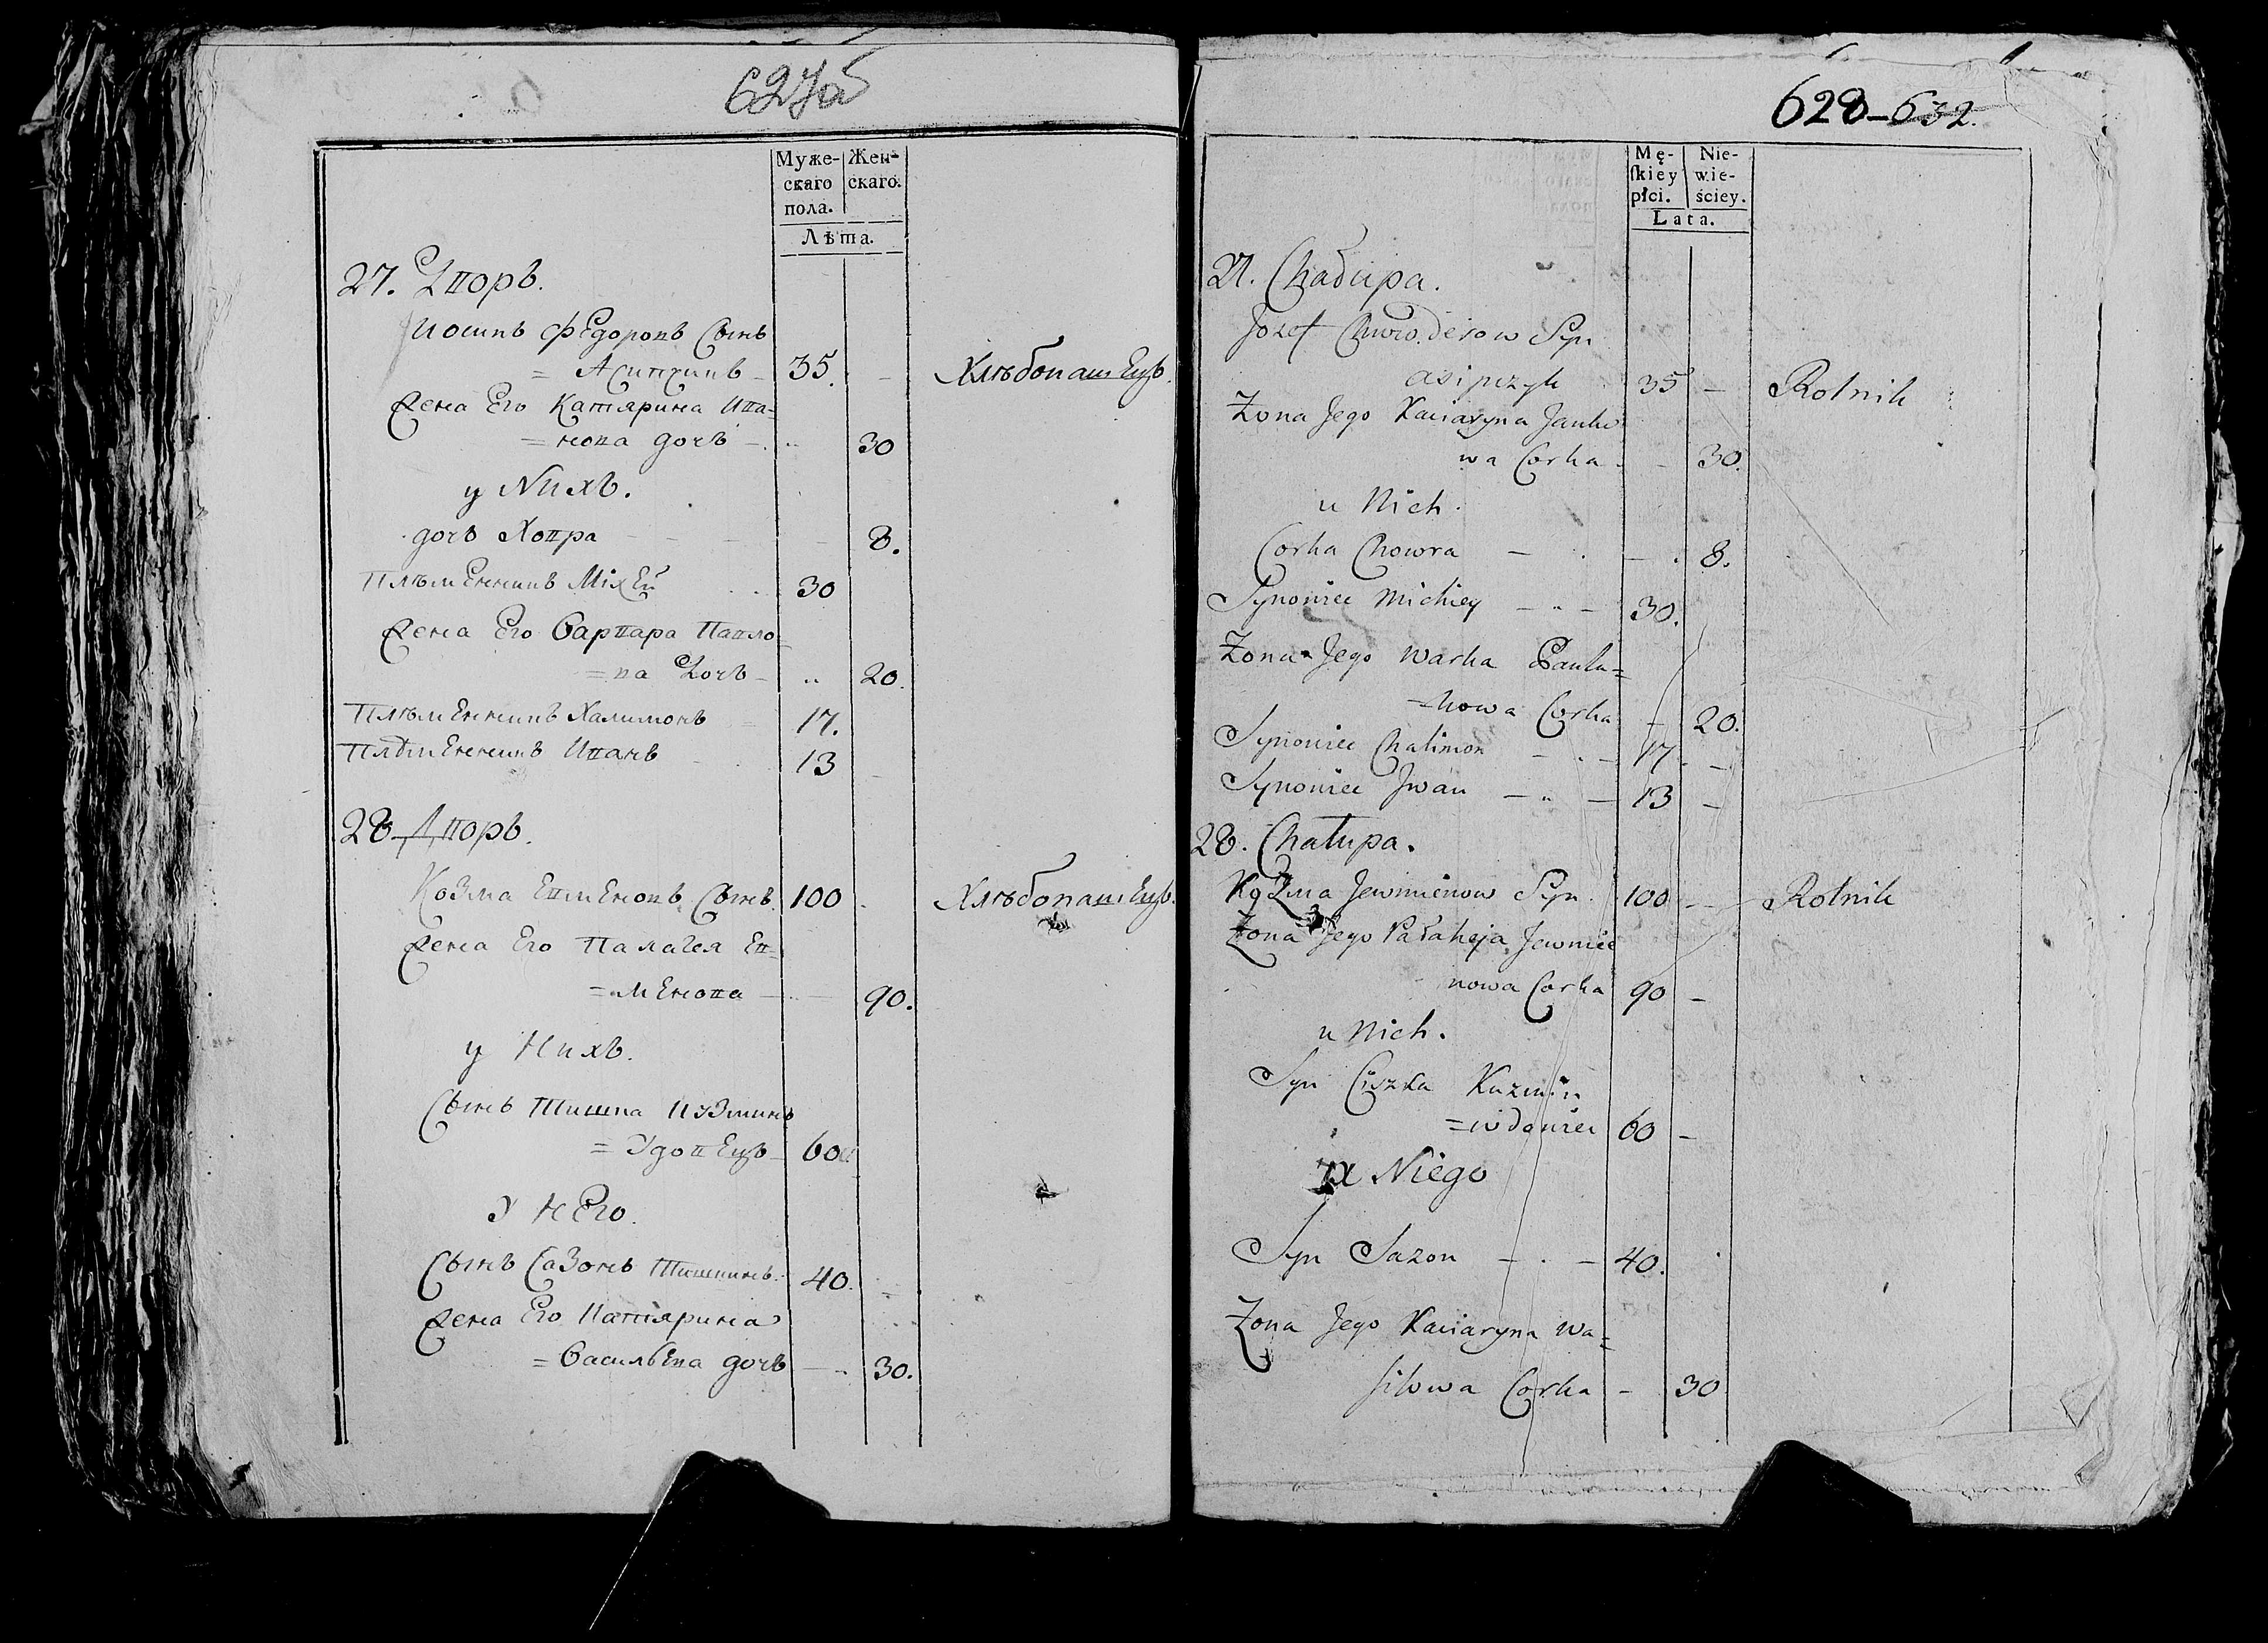 627об
Муже-
скаго
пола.
Жен-
скаго.
Лѣта.
27. Дворъ.
Иосипъ Федоровъ Сынъ
= Асипчикъ 35. –
Хлѣбопашецъ.
Жена Его Катярина Ива-
= нова дочь – .. 30
у Нихъ.
дочь Ховра – – – – 8.
Племенникъ Міхей 30
Жена Его Варвара Павло
= ва Дочь – .. 20.
Племенникъ Халимонъ 17.
Племенникъ Иванъ 13
28. Дворъ.
Козма Евменовъ Сынъ. 100
Хлѣбопашецъ.
Жена Его Палагея Ев-
= менова – – 90.
у Нихъ.
Сынъ Тишка Кузминъ
= Удовецъ – 60
У Него.
Сынъ Сазонъ Тишкинъ. 40.
Жена Его Катярина
= Васильева дочь – 30.
628–632.
Mę-
ſkiey
płci.
Nie-
wie-
ściey.
Lata.
27. Chałupa.
Jozef Chwiederow Syn
asipczyk 35 –
Rolnik
Żona Jego Kaciaryna Janko
wa Corka – 30.
u Nich.
Corka Chowra – . – . 8.
Synowiec Michiey – .. – 30.
Żona Jego Warka Paulu=
=kowa Corka – 20.
Synowiec Chalimon – . – 17. –
Synowiec Jwan – .. – 13 –
28. Chałupa.
Kozma Jewmienow Syn. 100 –
Rolnik
Żona Jego Pałaheja Jewmie
nowa Corka 90 –
u Nich.
Syn Ciszka Kuzmin
=wdowiec 60 –
u Niego
Syn Sazon – . – 40.
Żona Jego Kaciaryna Wa=
silowa Corka – 30